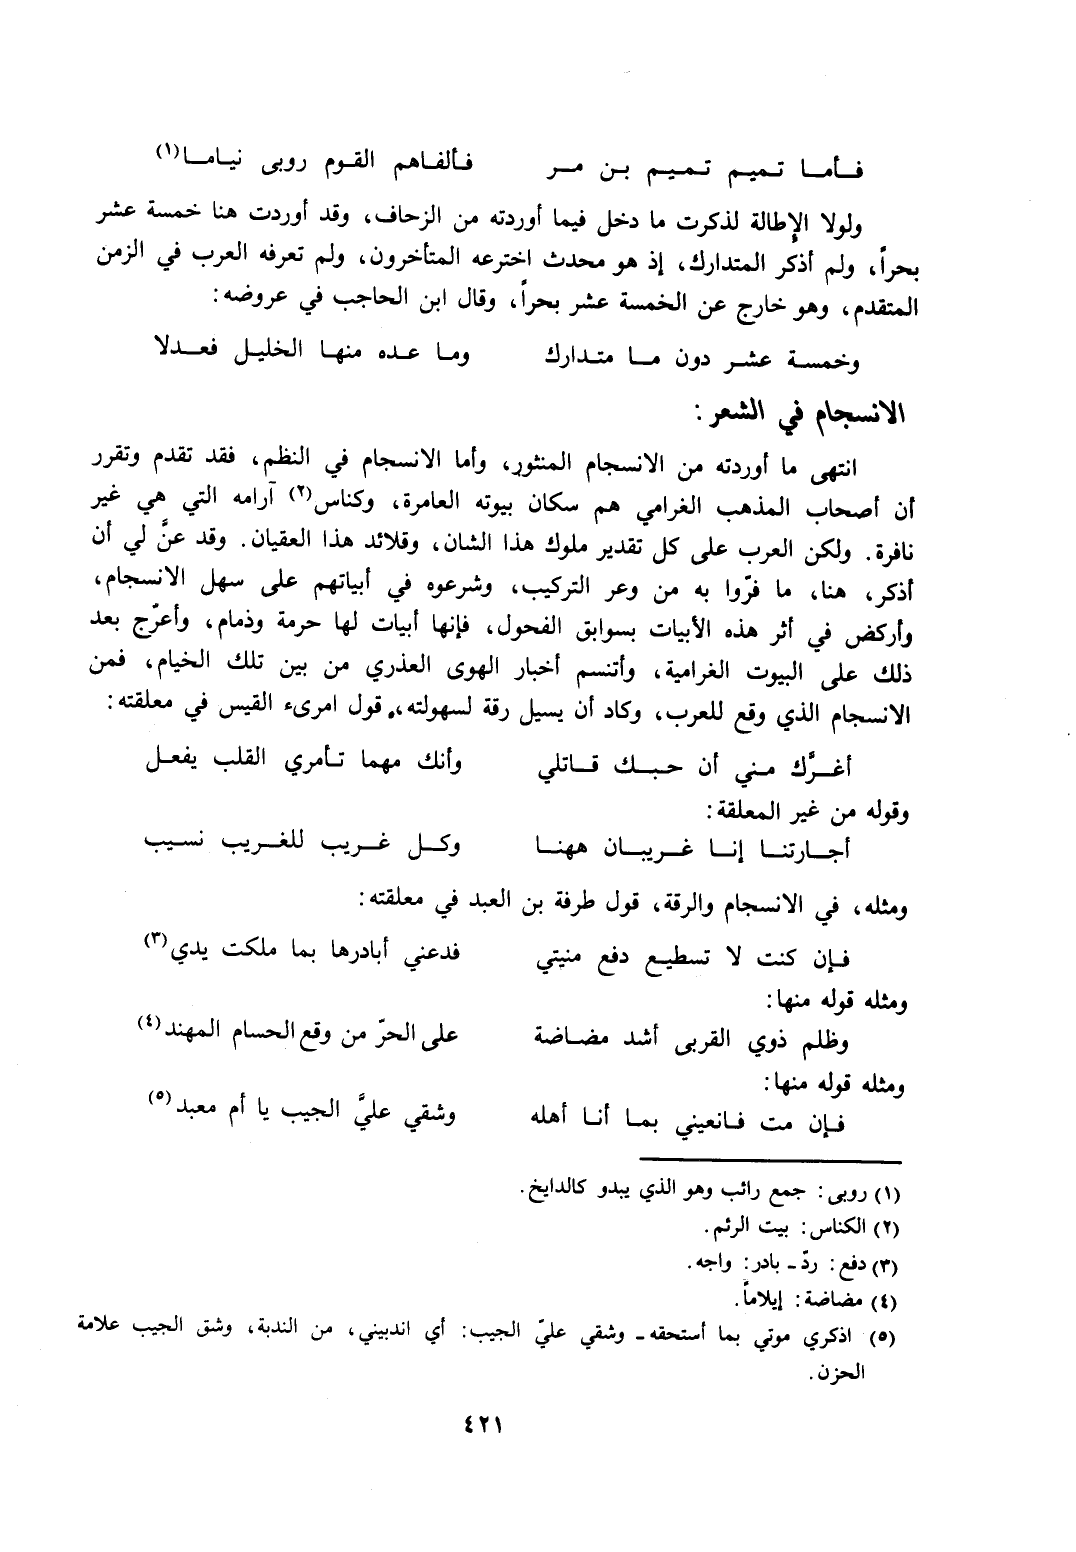 فـأمـا تـميـم تـميـم بـن مـر فـألفـاهم القـوم روبى نيـامـا(١)
ولولا الإطالة لذكرت ما دخل فيما أوردته من الزحاف، وقد أوردت هنا خمسة عشر
بحراً، ولم أذكر المتدارك، إذ هو محدث اخترعه المتأخرون، ولم تعرفه العرب في الزمن
المتقدم، وهو خارج عن الخمسة عشر بحراً، وقال ابن الحاجب في عروضه:
وخمسـة عشـر دون مـا متـدارك ومـا عـده منهـا الخليـل فعـدلا
الانسجام في الشعر:
انتهى ما أوردته من الانسجام المنثور، وأما الانسجام في النظم، فقد تقدم وتقرر
أن أصحاب المذهب الغرامي هم سكان بيوته العامرة، وكناس(٢) آرامه التي هي غير
نافرة. ولكن العرب على كل تقدير ملوك هذا الشان، وقلائد هذا العقيان. وقد عنَّ لي أن
أذكر، هنا، ما فرّوا به من وعر التركيب، وشرعوه في أبياتهم على سهل الانسجام،
وأركض في أثر هذه الأبيات بسوابق الفحول، فإنها أبيات لها حرمة وذمام، وأعرّج بعد
ذلك على البيوت الغرامية، وأتنسم أخبار الهوى العذري من بين تلك الخيام، فمن
الانسجام الذي وقع للعرب، وكاد أن يسيل رقة لسهولته، قول امرىء القيس في معلقته:
أغـرَّك مـني أن حبـك قـاتلي وأنك مهما تـأمري القلب يفعـل
وقوله من غير المعلقة:
أجـارتنـا إنـا غـريبـان ههنـا وكـل غـريب للغـريب نسـيب
ومثله، في الانسجام والرقة، قول طرفة بن العبد في معلقته:
فـإن كنت لا تسطيـع دفع منيتي فدعني أبادرها بما ملكت يدي(٣)
ومثله قوله منها:
وظلم ذوي القربى أشد مضـاضة على الحرّ من وقع الحسام المهند(٤)
ومثله قوله منها:
فـإن مت فـانعيني بمـا أنـا أهله وشقي عليَّ الجيب يا أم معبد(٥)
(١) روبى: جمع رائب وهو الذي يبدو كالدايخ.
(٢) الكناس: بيت الرئم.
(٣) دفع: ردّ ـ بادر: واجه.
(٤) مضاضة: إيلاماً.
(٥) اذكري موتي بما أستحقه ـ وشقي عليّ الجيب: أي اندبيني، من الندبة، وشق الجيب علامة
الحزن.
٤٢١